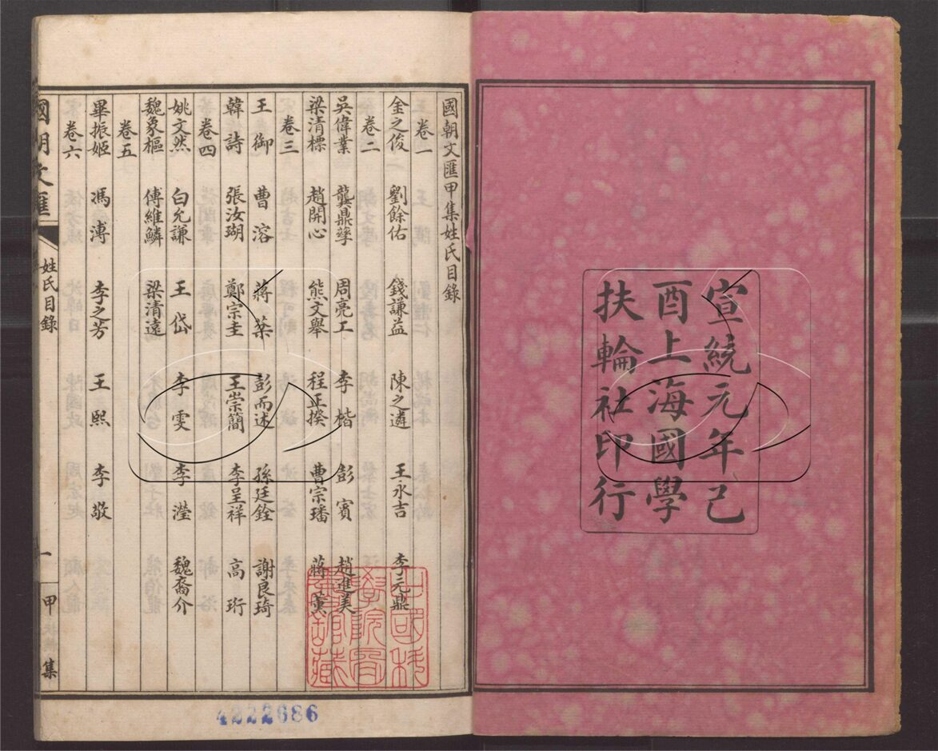 宣統元年己
酉上海國學
扶輪社印行
國朝文匯甲集姓氏目錄
卷一
金之俊 劉餘佑 錢謙益 陳之遴 王永吉 李元鼎
卷二
吳偉業 龔鼎孳 周亮工 李楷 彭賓 趙進美
梁清標 趙開心 熊文舉 程正揆 曹宗璠 蔣薰
卷三
王御 曹溶 蔣棻 彭而述 孫廷銓 謝良琦
韓詩 張汝瑚 鄭宗圭 王崇簡 李呈祥 高珩
卷四
姚文然 白允謙 王岱 李雯 李瀅 魏裔介
魏象樞 傅維鱗 梁清遠
卷五
畢振姬 馮溥 李之芳 王熙 李敬
卷六
國朝文匯 姓氏目錄 一 甲集
4222686